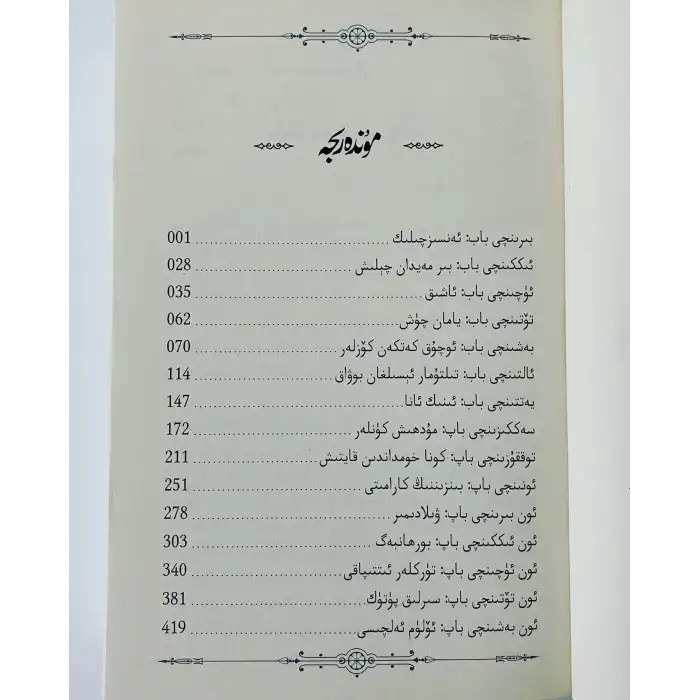 مۇندەرىجە
بىرىنچى باب: ئەنسىزچىلىك ........ 001
ئىككىنچى باب: بىر مەيدان چېلىش ........ 028
ئۈچىنچى باب: ئاشىق ........ 035
تۆتىنچى باب: يامان چۈش ........ 062
بەشىنچى باب: ئوچۇق كەتكەن كۆزلەر ........ 070
ئالتىنچى باب: تىلتۇمار ئېسىلغان بوۋاق ........ 114
يەتتىنچى باب: ئىنىك ئانا ........ 147
سەككىزىنچى باپ: مۇدھىش كۈنلەر ........ 172
توققۇزىنچى باپ: كونا خومداندىن قايتىش ........ 211
ئونىنچى باپ: بىنزىننىڭ كارامىتى ........ 251
ئون بىرىنچى باپ: ۋىلادىمىر ........ 278
ئون ئىككىنچى باپ: بورھانبەگ ........ 303
ئون ئۈچىنچى باپ: تۈركلەر ئىتتىپاقى ........ 340
ئون تۆتىنچى باپ: سىرلىق پۈتۈك ........ 381
ئون بەشىنچى باپ: ئۆلۈم ئەلچىسى ........ 419